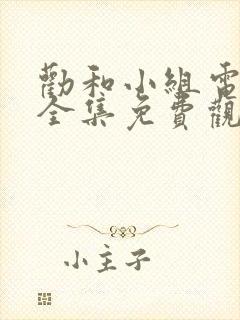 勸和小組電
全集免費觀
小主子